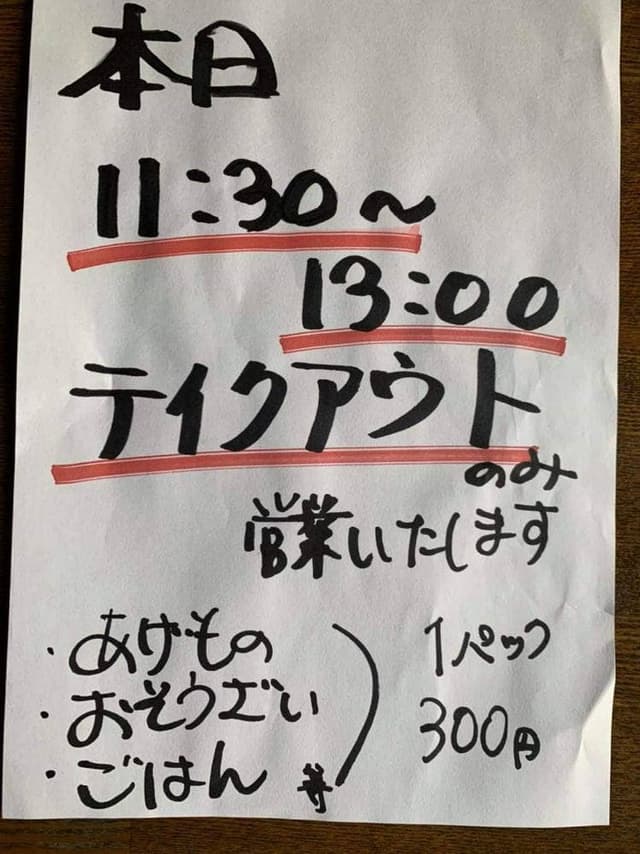 本日
11:30～
13:00
テイクアウト
のみ
営業いたします
・あげもの
・おそうざい
・ごはん 等
1パック
300円